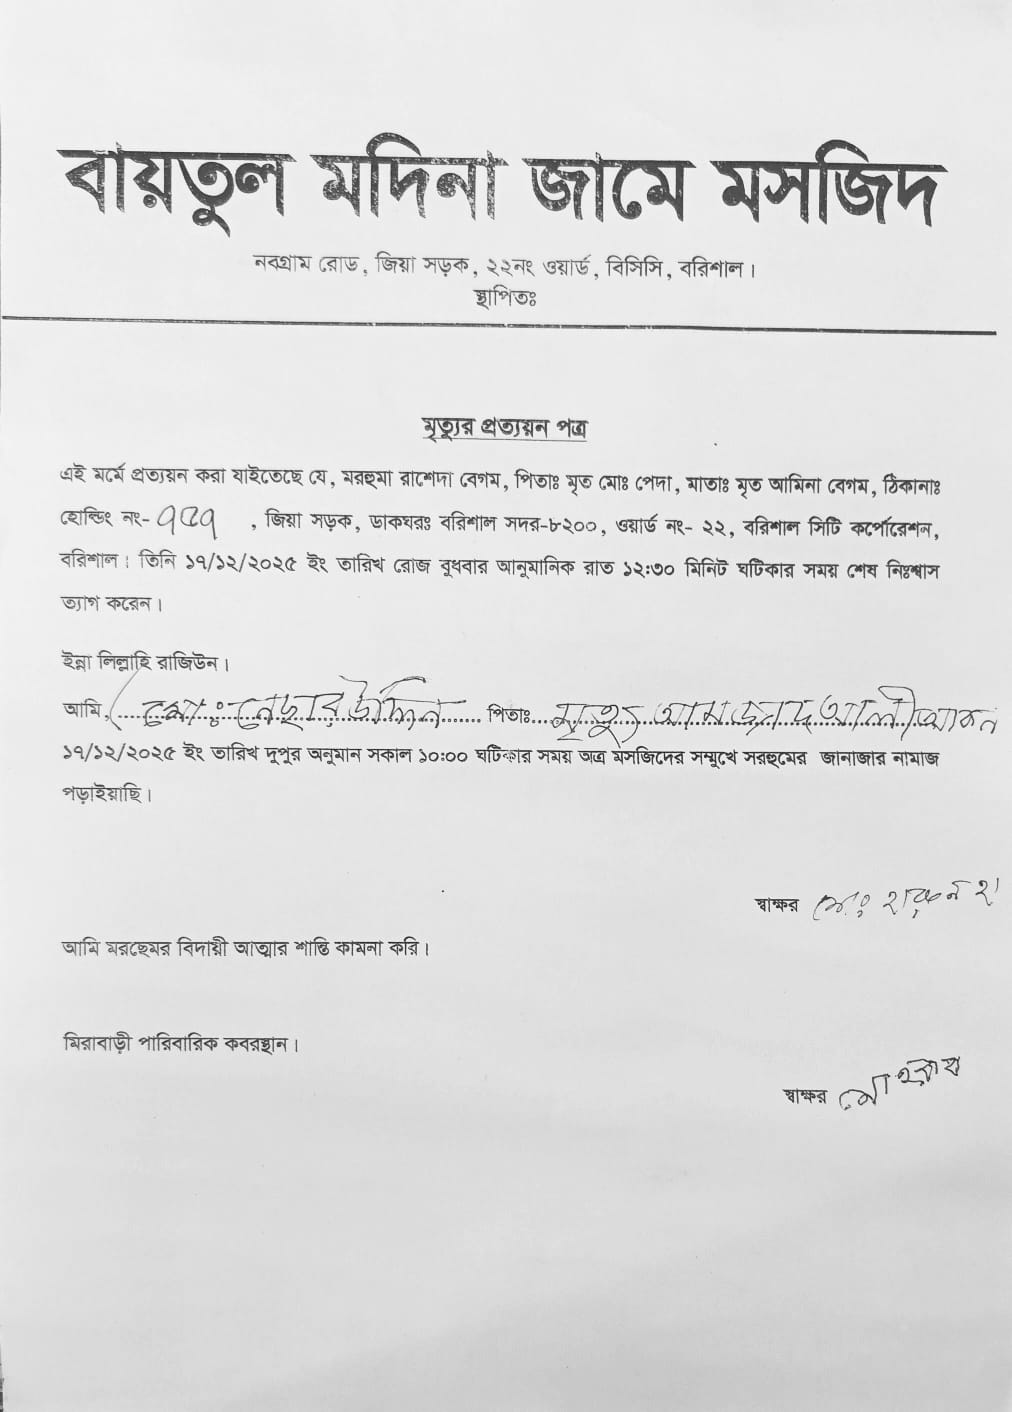 বায়তুল মদিনা জামে মসজিদ
নবগ্রাম রোড, জিয়া সড়ক, ২২নং ওয়ার্ড, বিসিসি, বরিশাল।
স্থাপিতঃ
মৃত্যুর প্রত্যয়ন পত্র
এই মর্মে প্রত্যয়ন করা যাইতেছে যে, মরহুমা রাশেদা বেগম, পিতাঃ মৃত মোঃ পেদা, মাতাঃ মৃত আমিনা বেগম, ঠিকানাঃ
হোল্ডিং নং- ৭৫৭ , জিয়া সড়ক, ডাকঘরঃ বরিশাল সদর-৮২০০, ওয়ার্ড নং- ২২, বরিশাল সিটি কর্পোরেশন,
বরিশাল। তিনি ১৭/১২/২০২৫ ইং তারিখ রোজ বুধবার আনুমানিক রাত ১২:৩০ মিনিট ঘটিকার সময় শেষ নিঃশ্বাস
ত্যাগ করেন।
ইন্না লিল্লাহি রাজিউন।
আমি, মোঃ নেছার উদ্দিন পিতাঃ মৃত আমজাদ আলী আকন
১৭/১২/২০২৫ ইং তারিখ দুপুর অনুমান সকাল ১০:০০ ঘটিকার সময় অত্র মসজিদের সম্মুখে সরহুমের জানাজার নামাজ
পড়াইয়াছি।
স্বাক্ষর মোঃ
আমি মরহুমের বিদায়ী আত্মার শান্তি কামনা করি।
মিরাবাড়ী পারিবারিক কবরস্থান।
স্বাক্ষর মো